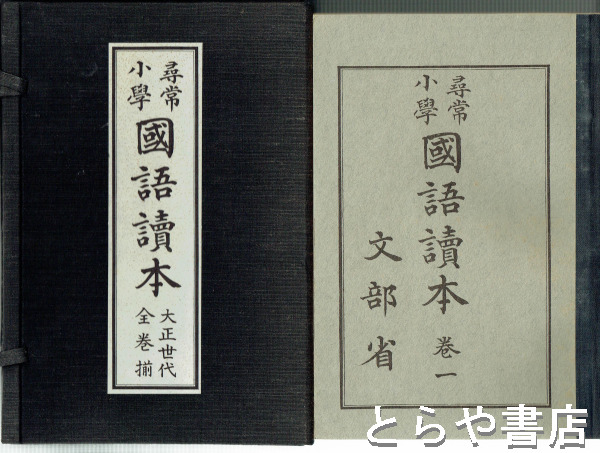 尋常
小學
國語讀本
大正世代
全巻揃
尋常
小學
國語讀本
卷一
文部省
とらや書店